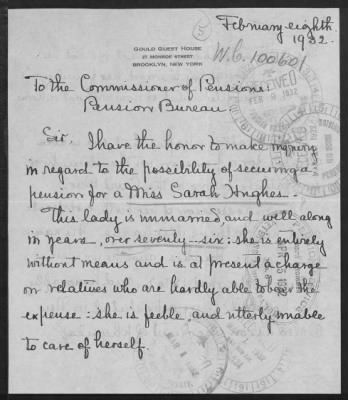 February eighth
1932.
5
GOULD GUEST HOUSE
27 MONROE STREET
BROOKLYN, NEW YORK
W.C. 100601
RECEIVED
FEB 9 1932
To the Commissioner of Pensions:
Pension Bureau
Sir, I have the honor to make inquiry
in regard to the possibility of securing a
pension for a Miss Sarah Hughes.
This lady is unmarried, and well along
in years, over seventy-six: she is entirely
without means and is at present a charge
on relatives who are hardly able to bear the
expense: she is feeble and utterly unable
to care of herself.